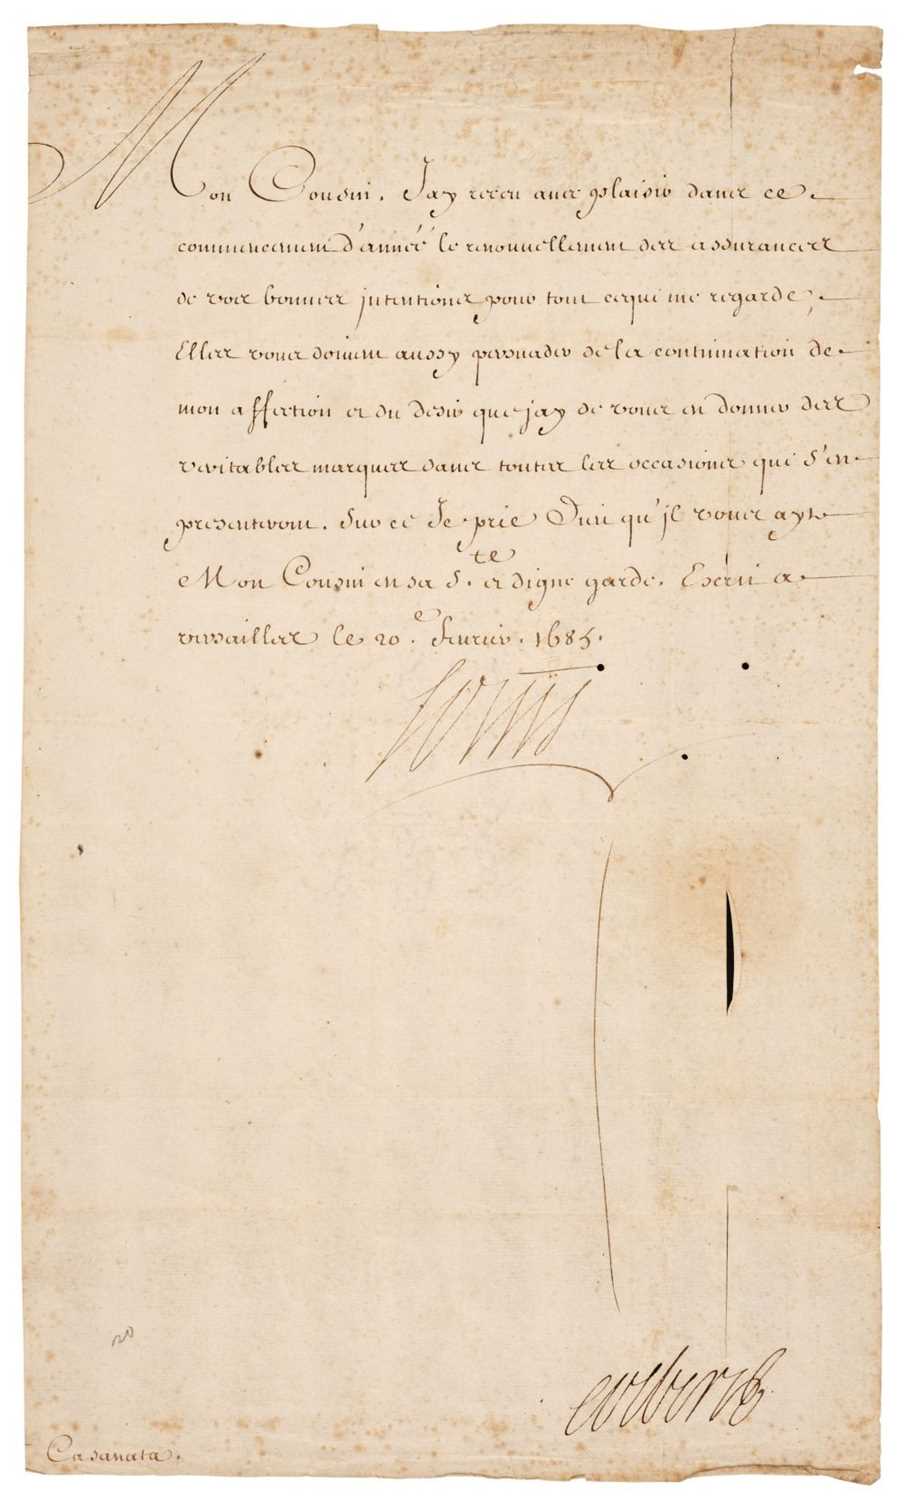 Mon Cousin. J'ay receu avec plaisir dans ce
commencement d'année le renouvellement des assurances
de vos bonnes intentions pour tout ce qui me regarde,
Elles vous doivent aussy persuader de la continuation de
mon affection et du desir que j'ay de vous en donner des
veritables marques dans toutes les occasions qui s'en
presenteront. Sur ce Je prie Dieu qu'il vous ayt
Mon Cousin en sa S.te et digne garde. Escrit a
versailles le 20.e fevrier. 1685.
Louis
Colbert
20
Casanata.